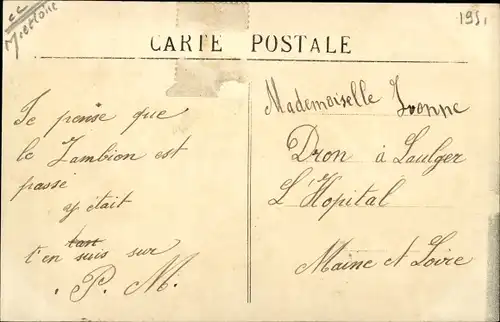 CARTE POSTALE
Je pense que
le Zambion est
passé
y était
t'en suis sur
P. M.
Mademoiselle Yvonne
Dron à Laulger
L'Hopital
Maine et Loire